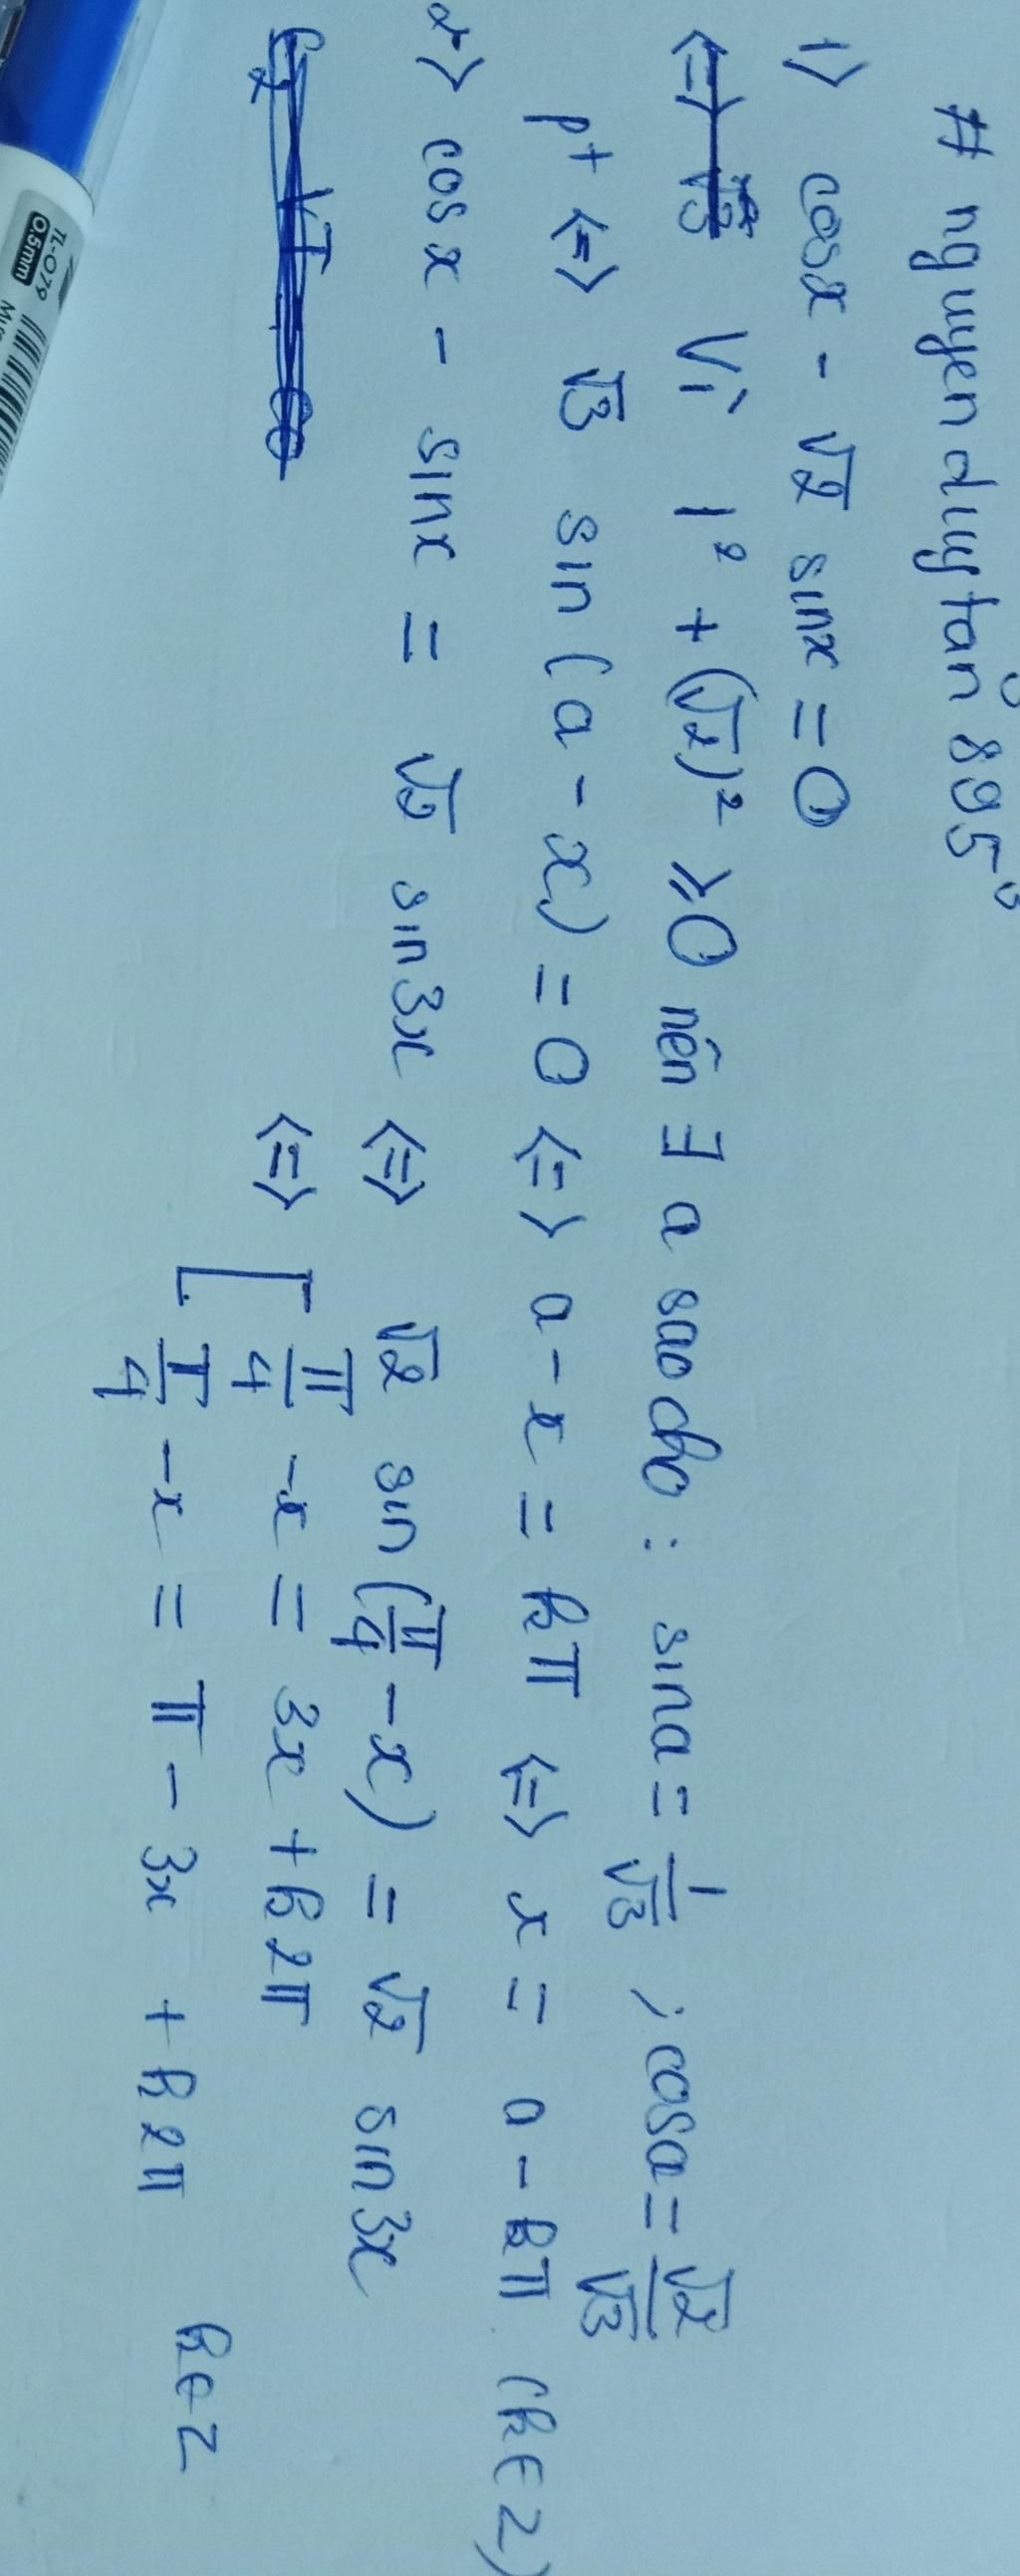 # nguyen duytan 895
1> cosx - √2 sinx = 0
<=> √3 Vì 1² + (√2)² ≥ 0 nên ∃ a sao cho : sina = 1/√3 ; cosa = √2/√3
pt <=> √3 sin(a - x) = 0 <=> a - x = kπ <=> x = a - kπ (k ∈ Z)
2> cosx - sinx = √2 sin3x <=> √2 sin(π/4 - x) = √2 sin3x
<=> [ π/4 - x = 3x + k2π
π/4 - x = π - 3x + k2π k ∈ Z
TL-079
0.5mm